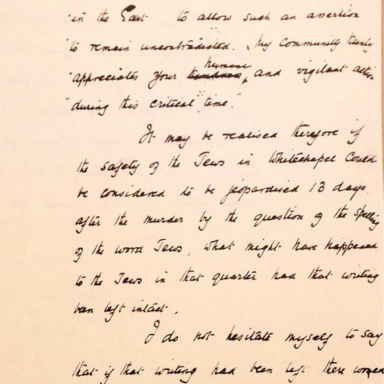 "in the East to allow such an assertion
"to remain uncontradicted. My Community keenly
"appreciates your humane and vigilant action
"during this critical time."
It may be realised therefore if
the safety of the Jews in Whitechapel could
be considered to be jeopardised 13 days
after the murder by the question of the spelling
of the word Jews, what might have happened
to the Jews in that quarter had that writing
been left intact.
I do not hesitate myself to say
that if that writing had been left there would